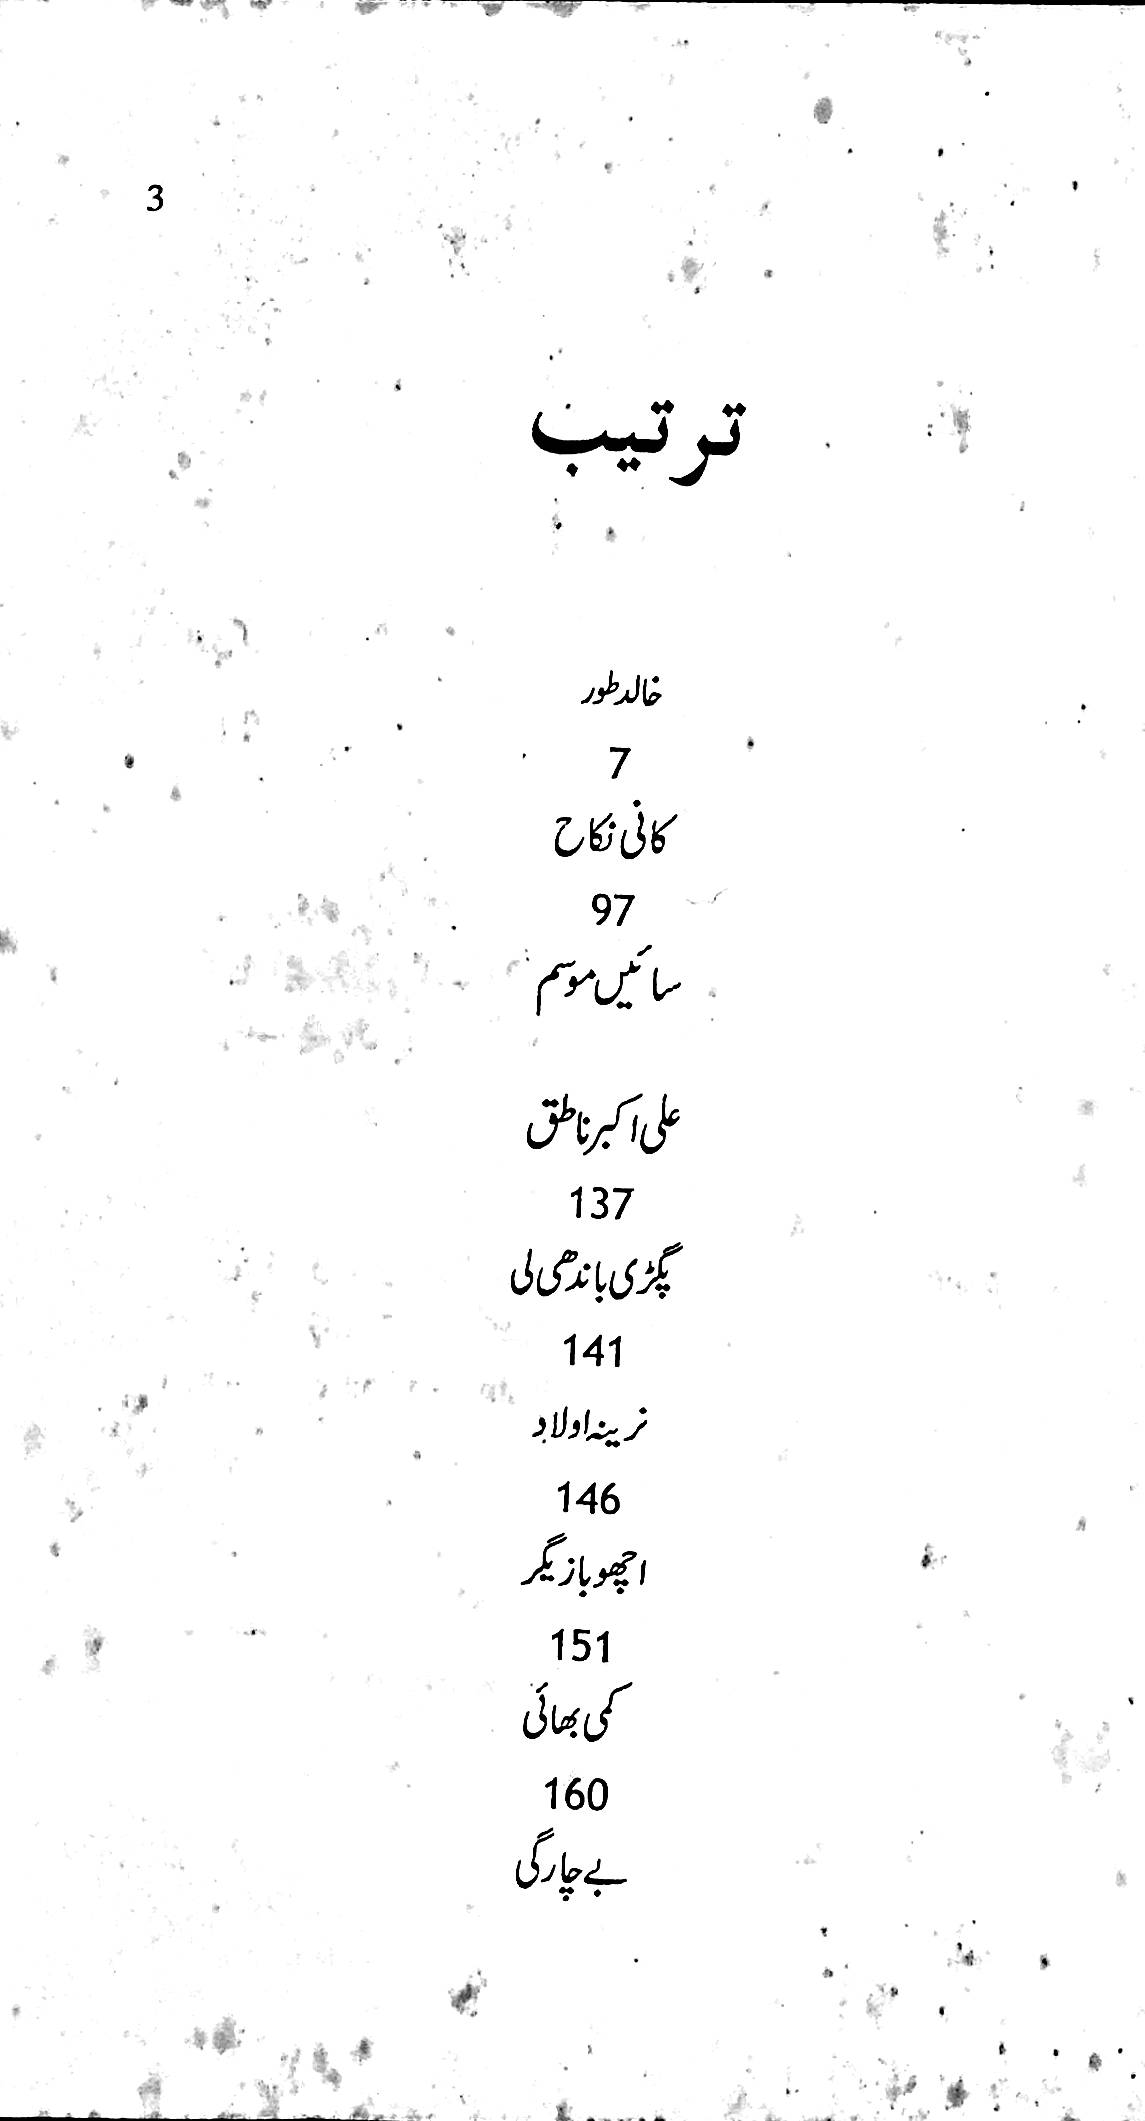 3
ترتیب
خالد طور
7
کانی نکاح
97
سائیں موسم
علی اکبر ناطق
137
پگڑی باندھی لی
141
نرینہ اولاد
146
اچھو بازیگر
151
کمی بھائی
160
بے چارگی